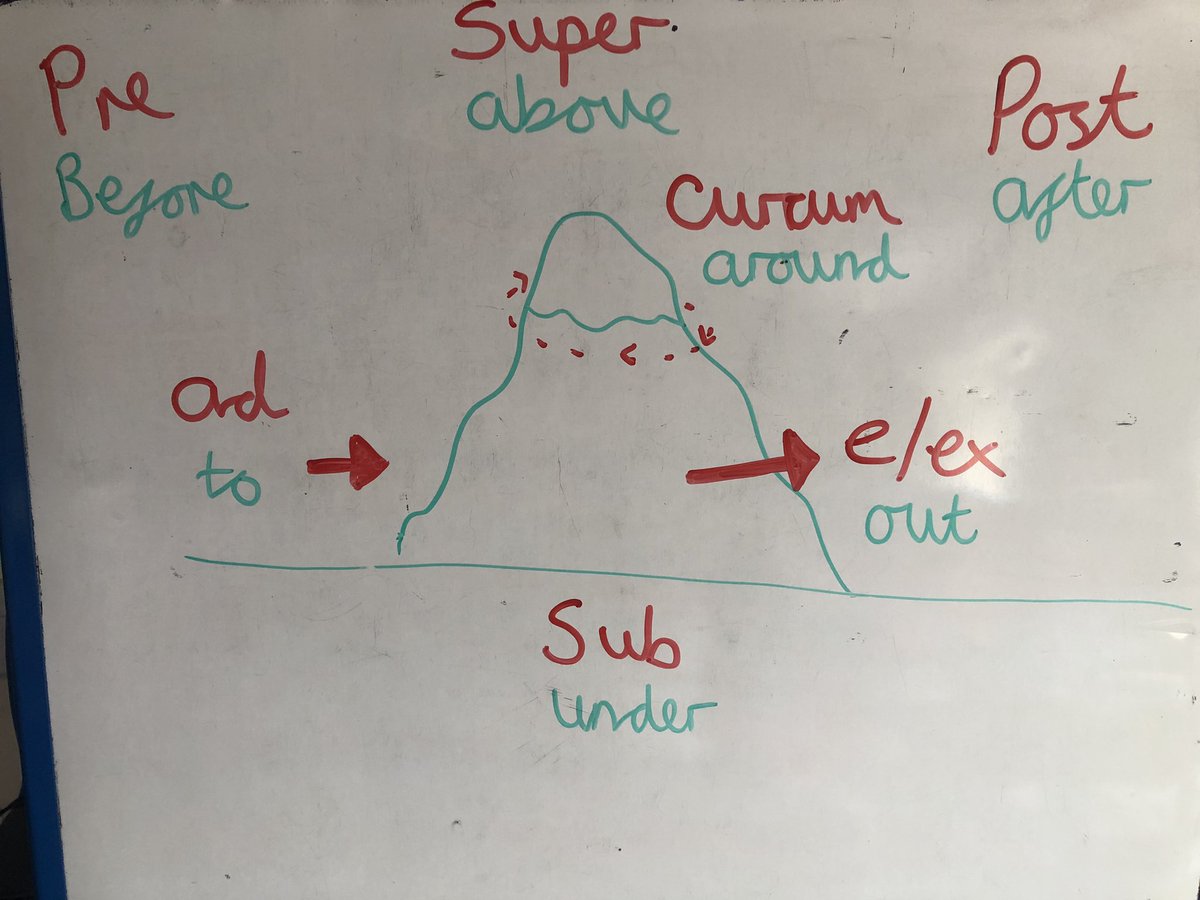 Super
above
Pre
Before
Post
after
Curcum
around
ad
to
e/ex
out
Sub
under